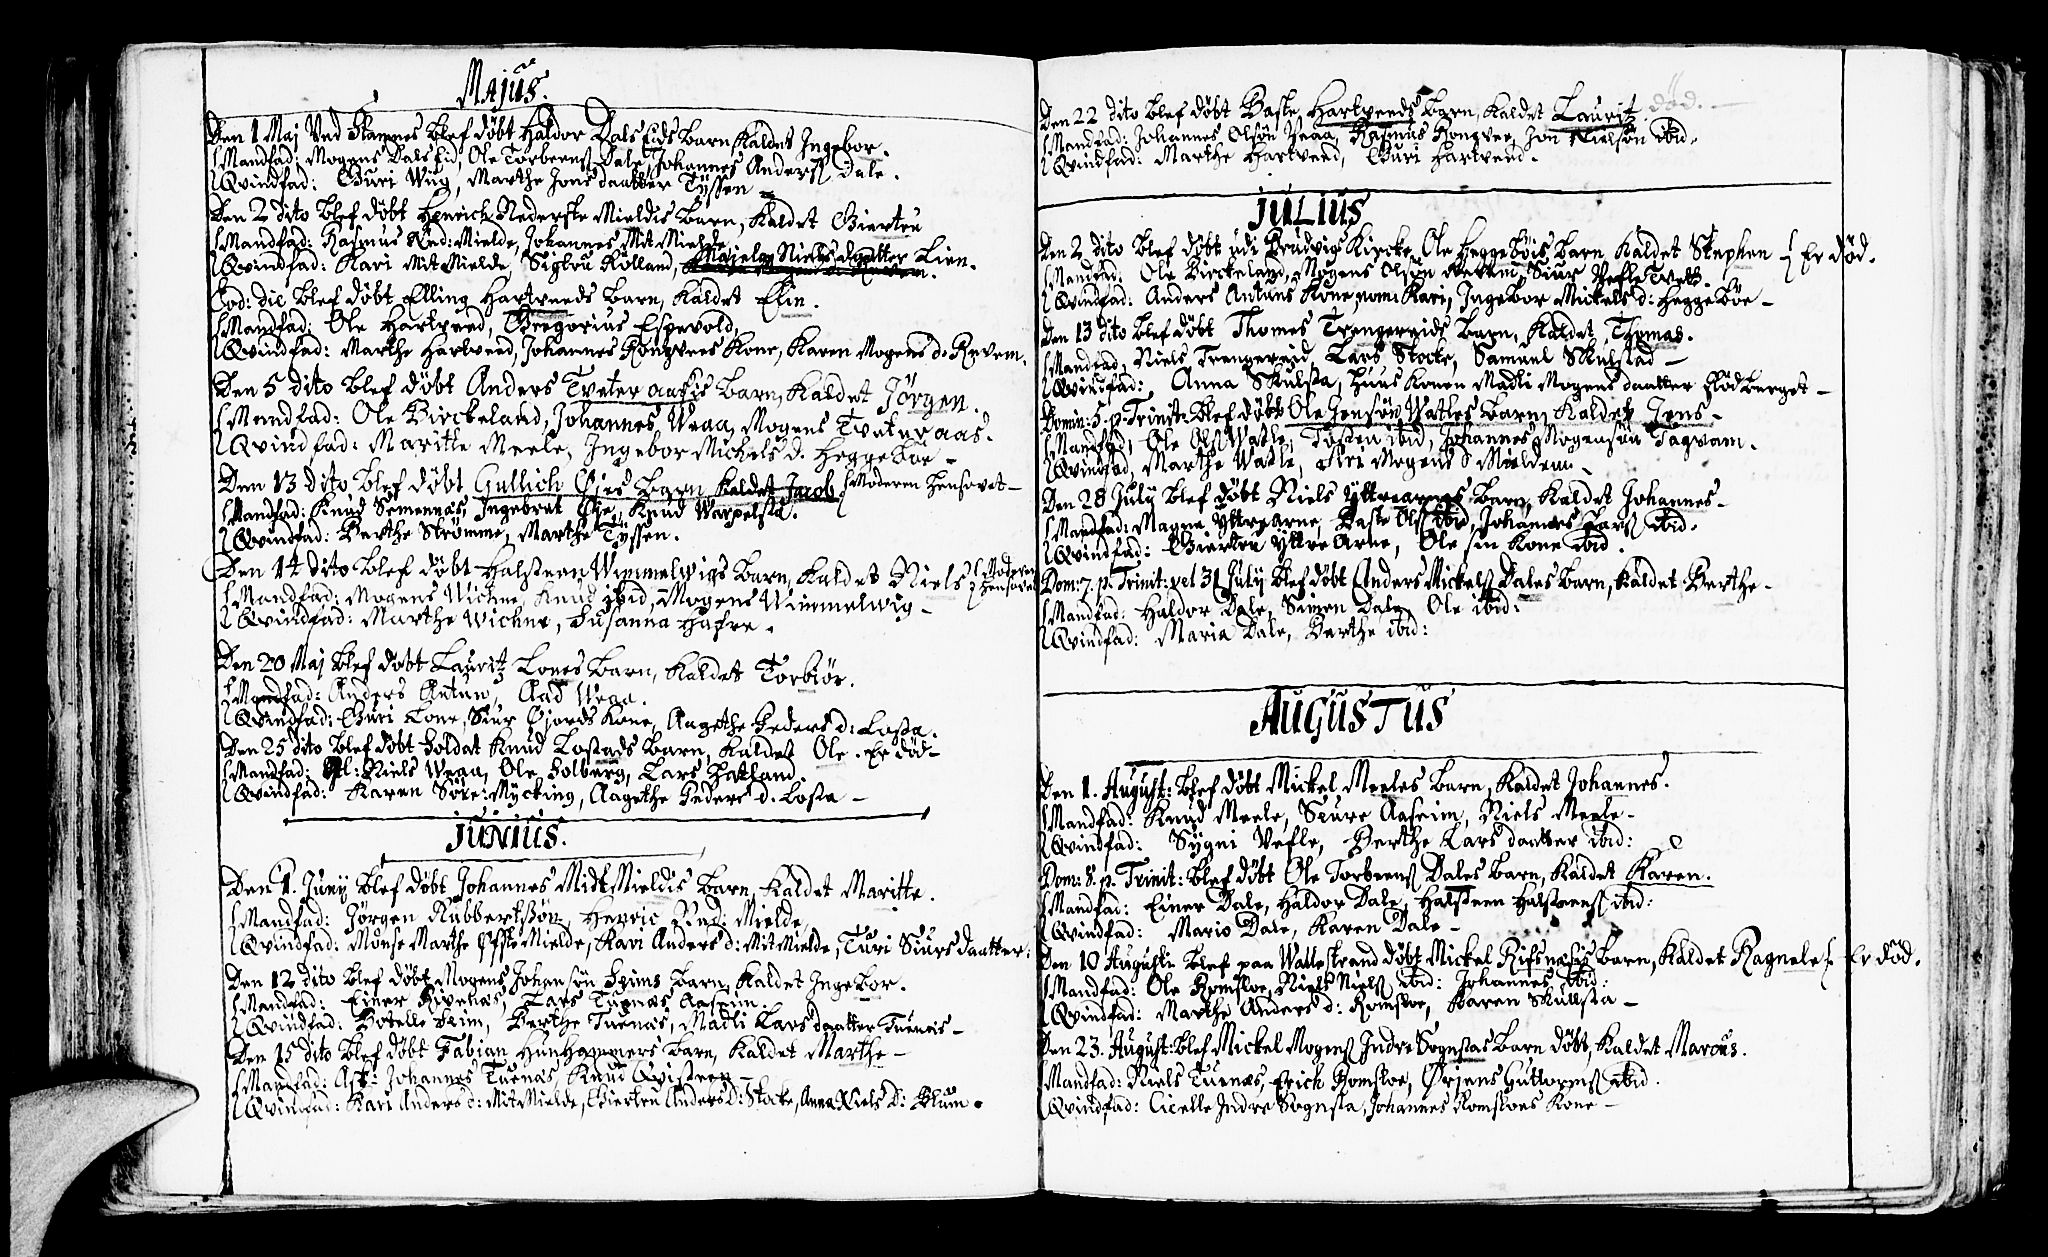 Majus.
Den 1 Maj Ved Stamnes blef døbt Haldor Dals Eids barn kaldet Ingebor.
Mandfad: Mogens Dals Eid, Ole Torbens Dale, Johannes Anders Dale.
Qvindfad: Guri Wiig, Marthe Jons daatter Tyssen
Den 2 dito blef døbt Henrich Nederste Mieldis barn, kaldet Giertru
Mandfad: Rasmus Ned: Mielde, Johannes Mit Mielde
Qvindfad: Kari Mit Mielde, Sigtru Rolland, Majela Niels daatter Lien.
Eod: die blef døbt Elling Hartveeds barn, kaldet Elin.
Mandfad: Ole Hartveed, Gregorius Espevold,
Qvindfad: Marthe Hartveed, Johannes Rongvees Kone, Karen Mogens d: Revem.
Den 5 dito blef døbt Anders Tveter aasis barn, kaldet Jörgen.
Mandfad: Ole Birckeland, Johannes Weaa, Mogens Tveteraas.
Qvindfad: Maritte Meele, Ingebor Michels d. Heggeböe
Den 13 dito, blef døbt Gullich Øies barn kaldet Jacob Moderen hensovet
Mandfad: Knud Semennæs, Ingebret Øie, Knud Warpelsta.
Qvindfad: Berthe Strömme, Marthe Tyssen.
Den 14 dito blef døbt Halsteen Wimmelwigs barn, kaldet Niels Moderen hensovet
Mandfad: Mogens Wichne, Knud ibid, Mogens Wimmelwig
Qvindfad: Marthe Wichne, Susanna Hafre.
Den 20 Maj blef døbt Lauritz Lones barn, kaldet Torbiör.
Mandfad: Anders Antun, Aad Weaa.
Qvindfad: Guri Lone, Siur Øjords Kone, Aagethe Peders d: Losta.
Den 25 dito blef døbt Soldat Knud Lostads barn, kaldet Ole. Er död
Mandfad: Niels Weaa, Ole Solberg, Lars Hatland.
Qvindfad: Karen Söre: Mycking, Aagethe Peders d. Losta
Junius.
Den 1. Juny blef døbt Johannes Midt Mieldis barn, kaldet Maritte.
Mandfad: Jörgen Rubbertsön, Henric Ned: Mielde,
Qvindfad: Monse Marthe Øfste Mielde, Kari Anders d: Mit Mielde, Turi Siurs daatter:
Den 12 dito blef døbt Mogens Johansön Seims barn, kaldet Ingebor.
Mandfad: Einer Rivenæs, Lars Tuenæs, Aaseim.
Qvindfad: Botelle Seim, Berthe Tuenæs, Madli Lars daatter Tuenæs
Den 15 dito blef døbt Fabian Hunhammers barn, kaldet Marthe
Mandfad: Johannes Tuenæs, Knud Qvisteen
Qvindfad: Kari Anders d: Mit Mielde, Giertru Anders d: Stocke, Anna Niels d: Blum.
Den 22 dito blef døbt Baste Hartveeds barn, kaldet Lauritz. död.
Mandfad: Johannes Olsön Weaa, Rasmus Rongvee, Jon Nielsön ibid.
Qvindfad: Marthe Hartveed, Guri Hartveed.
Julius
Den 2 dito blef døbt udi Brudvigs Kircke Ole Heggeböis barn kaldet Stephen Er död.
Mandfad: Ole Birckeland, Mogens Olsön Siur Vefle Tveit.
Qvindfad: Anders Antuns Kone, nom: Kari, Ingebor Mickels d: Heggeböe
Den 13 dito blef døbt Thomes Trengereids barn, kaldet Thomas.
Mandfad, Niels Trengereid, Lars Stocke, Samuel Skulstad
Qvindfad: Anna Skulsta, Huus Konen Madli Mogens daatter Flödberget
Domin: 5. p. Trinit: blef døbt Ole Jensön Watles barn kaldet Jens
Mandfad, Ole Ols Watle, Tosten ibid, Johannes Mogensön Tagvam.
Qvindfad, Marthe Watle, Siri Mogens Mieldem
Den 28 July blef døbt Niels Yttrearnes barn, kaldet Johannes
Mandfad: Magne Yttrearne, Baste Ols ibid, Johannes Lars ibid.
Qvindfad: Giertru Yttre Arne, Ole sin Kone ibid.
Dom: 7. p. Trinit: vel 31 July blef døbt Anders Mickels Dales barn, kaldet Berthe
Mandfad: Haldor Dale, Simen Dale, Ole ibid:
Qvindfad: Maria Dale, Berthe ibid:
Augustus
Den 1. August: blef døbt Mickel Meeles barn, kaldet Johannes.
Mandfad: Knud Meele, Siure Aaseim, Niels Meele
Qvindfad: Sygni Vefle, Berthe Lars daatter ibid:
Dom: 8. p. Trinit: blef døbt Ole Torbeens Dales barn, kaldet Karen.
Mandfad: Einer Dale, Haldor Dale, Halsteen Halsteens ibid:
Qvindfad: Mario Dale, Karen Dale
Den 10 Augusti blef paa Wallestrand døbt Mickel Rifsnæsis barn, kaldet Ragnele Er död.
Mandfad: Ole Romsloe, Niels Niels ibid: Johannes ibid:
Qvindfad: Marthe Anders d: Romsloe, Karen Skullsta
Den 23. August: blef Mickel Mogens Indre Sognstas barn døbt, kaldet Marcus.
Mandfad: Niels Tuenæs, Erick Romsloe, Ørjens Guttorms ibid.
Qvindfad: Cicelle Indre Sognsta, Johannes Romsloes Kone